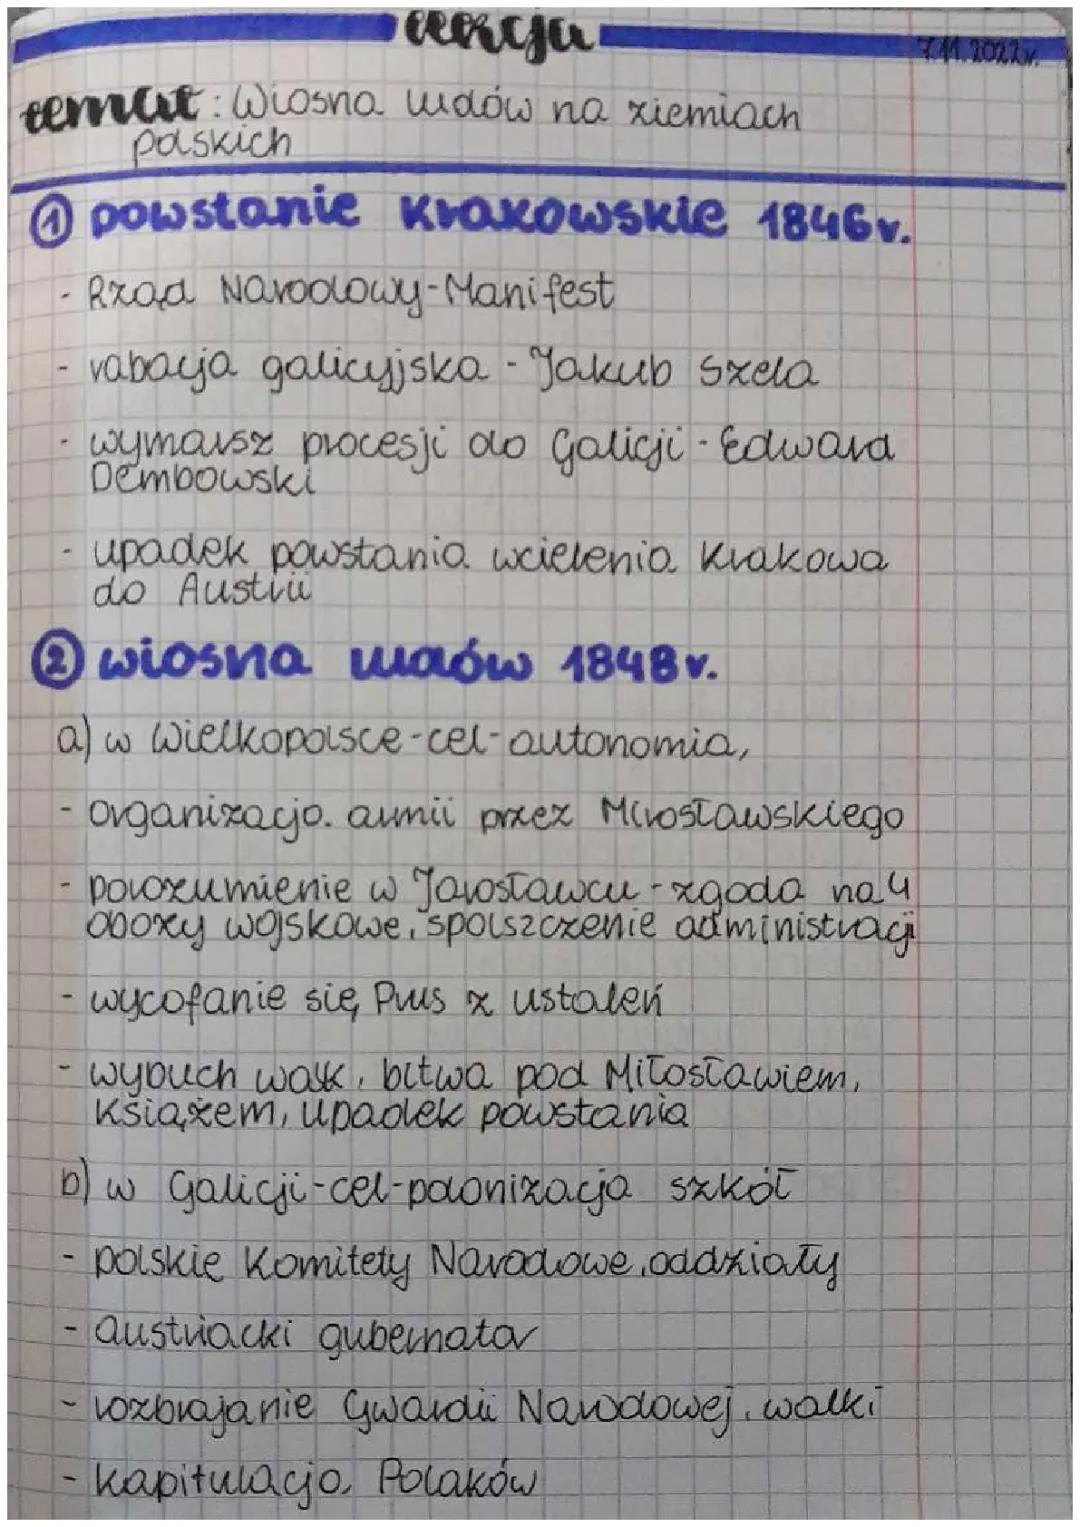 lekcja
7.11.2022r.
temat: Wiosna ludów na ziemiach
polskich
① powstanie krakowskie 1846r.
- Rząd Narodowy-Manifest
- rabacja galicyjska - Jakub Szela
- wymarsz procesji do Galicji - Edward
Dembowski
- upadek powstania wcielenia Krakowa
do Austrii
② wiosna ludów 1848r.
a) w Wielkopolsce-cel-autonomia,
- organizacja armii przez Mirosławskiego
- porozumienie w Jarosławcu - zgoda na 4
obozy wojskowe, spolszczenie administracji
- wycofanie się Prus z ustaleń
- wybuch walk, bitwa pod Miłosławiem,
Książem, upadek powstania
b) w Galicji-cel-polonizacja szkół
- polskie Komitety Narodowe, oddziały
- austriacki gubernator
- rozbrajanie Gwardii Narodowej, walki
- kapitulacja Polaków